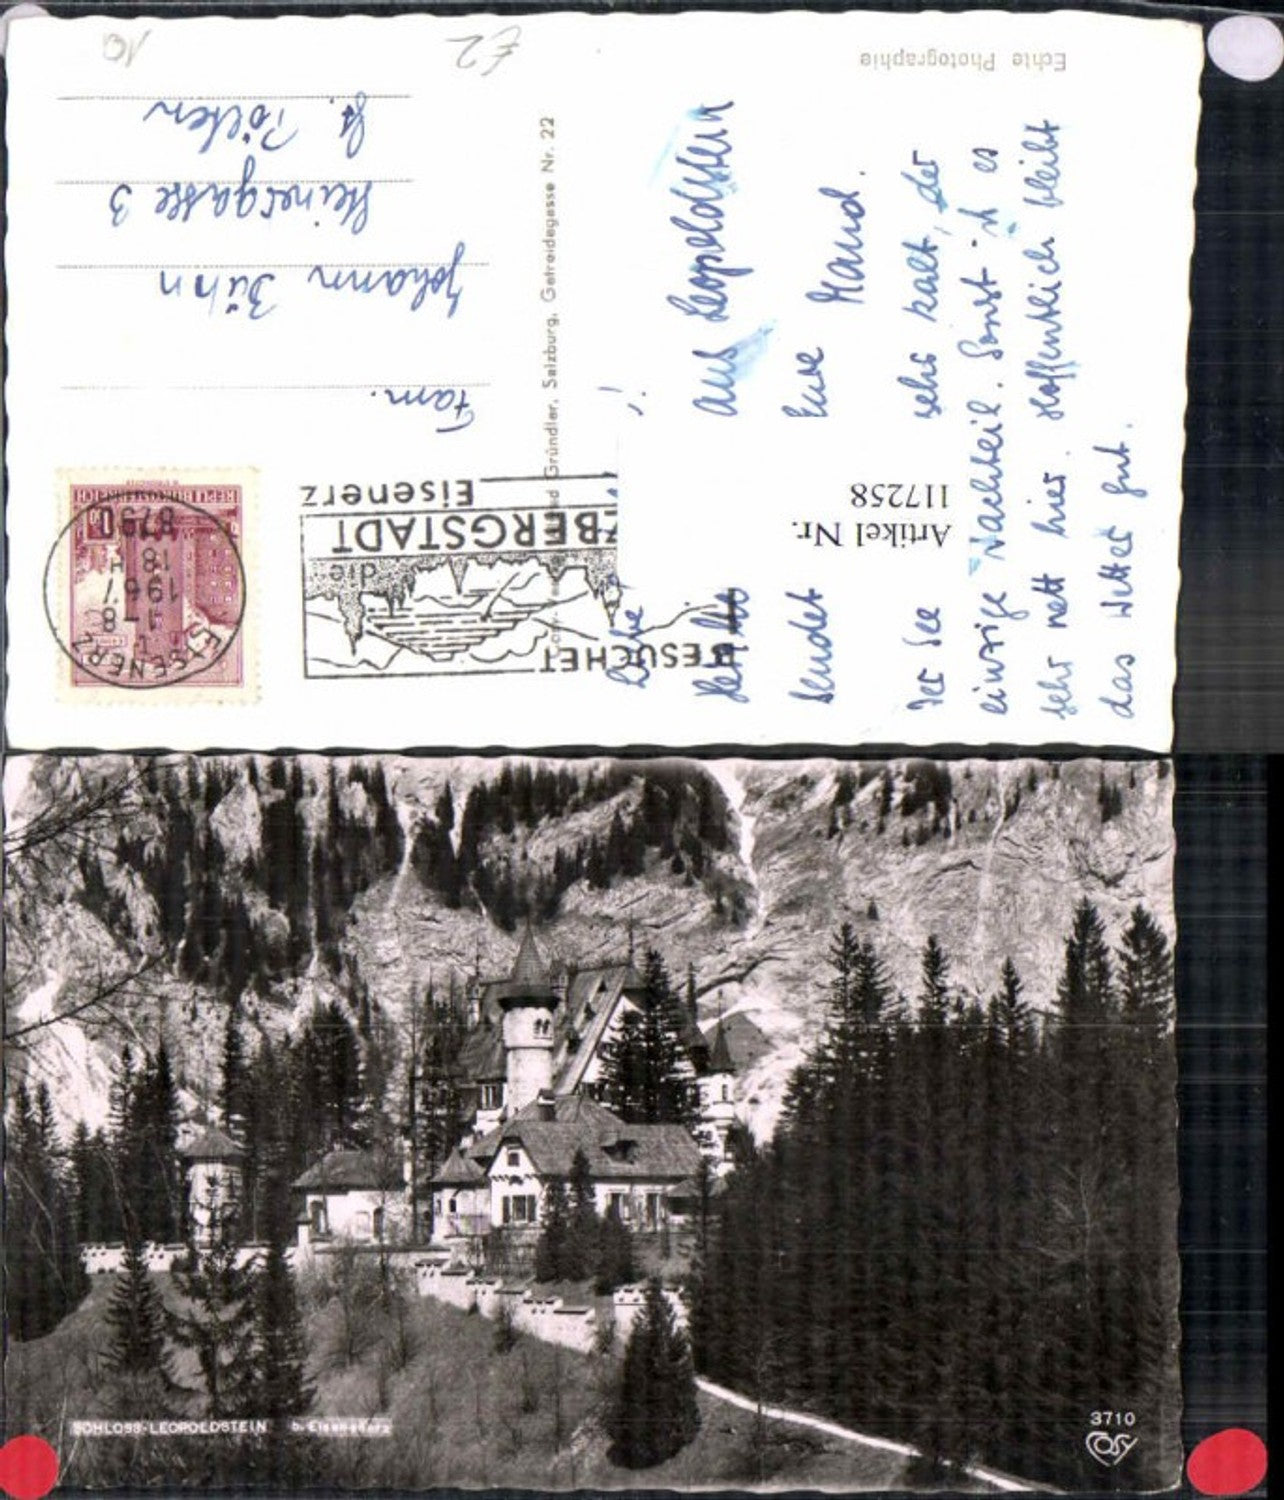 Echte Photographie
£2
10
Liebe !
aus Leopoldstein
sendet Eure Maud.
Der See sehr kalt, der
einzige Nachteil. Sonst ist es
sehr nett hier. Hoffentlich bleibt
das Wetter gut.
Artikel Nr.
117258
Gründler, Salzburg, Getreidegasse Nr. 22
BESUCHET
die
ZBERGSTADT
Eisenerz
REPUBLIK ÖSTERREICH
EISENERZ
1967
18
8790
Fam.
Johann Zühn
Steinergasse 3
St. Pölten
SCHLOSS-LEOPOLDSTEIN b. Eisenerz
3710
COSY